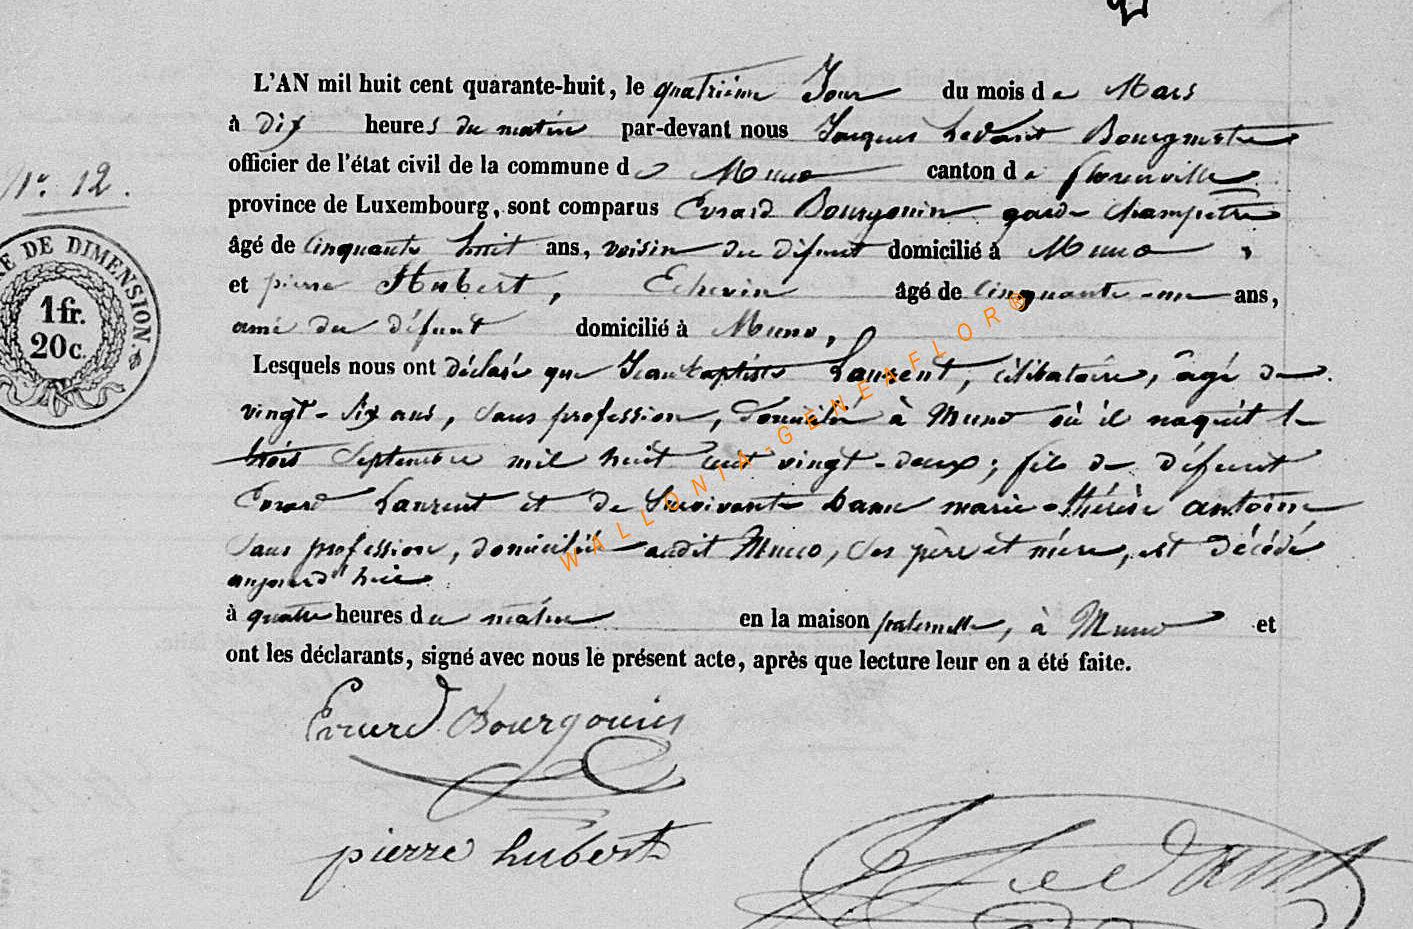 L'AN mil huit cent quarante-huit, le quatrième Jour du mois de Mars
à dix heures du matin par-devant nous Jacques Ledant Bourgmestre
officier de l'état civil de la commune de Muno canton de florenville
province de Luxembourg, sont comparus Evrard Bourgouin garde champetre
N° 12.
âgé de Cinquante huit ans, voisin du défunt domicilié à Muno ,
et pierre Hubert, Echevin âgé de Cinquante-un ans,
ami du défunt domicilié à Muno,
Lesquels nous ont déclaré que Jean baptiste Laurent, célibataire, âgé de
vingt-six ans, sans profession, domicilié à Muno où il naquit le
trois Septembre mil huit cent vingt-deux; fils de défunt
Evrard Laurent et de Survivante Dame marie-thérèse antoine
sans profession, domiciliée audit Muno, ses père et mère, est décédé
aujourd'hui
à quatre heures du matin en la maison paternelle, à Muno et
ont les déclarants, signé avec nous le présent acte, après que lecture leur en a été faite.
RE DE DIMENSION.
1 fr.
20 c.
WALLONIA-GENEAFLOR©
Evrard Bourgouin
pierre hubert
J Ledant